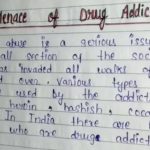 Menace of Drug Addic
abuse is a serious issu
all section of the soc
invaded all walks of
over various types
used by the addict
heroin, hashish, coca
In India there are
who are drug addict